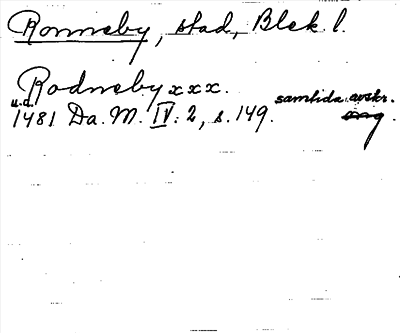 Ronneby, stad, Blek. l.
Rodneby xxx.
u.d. samtida avskr.
1481 Da. M. IV: 2, s. 149. orig.